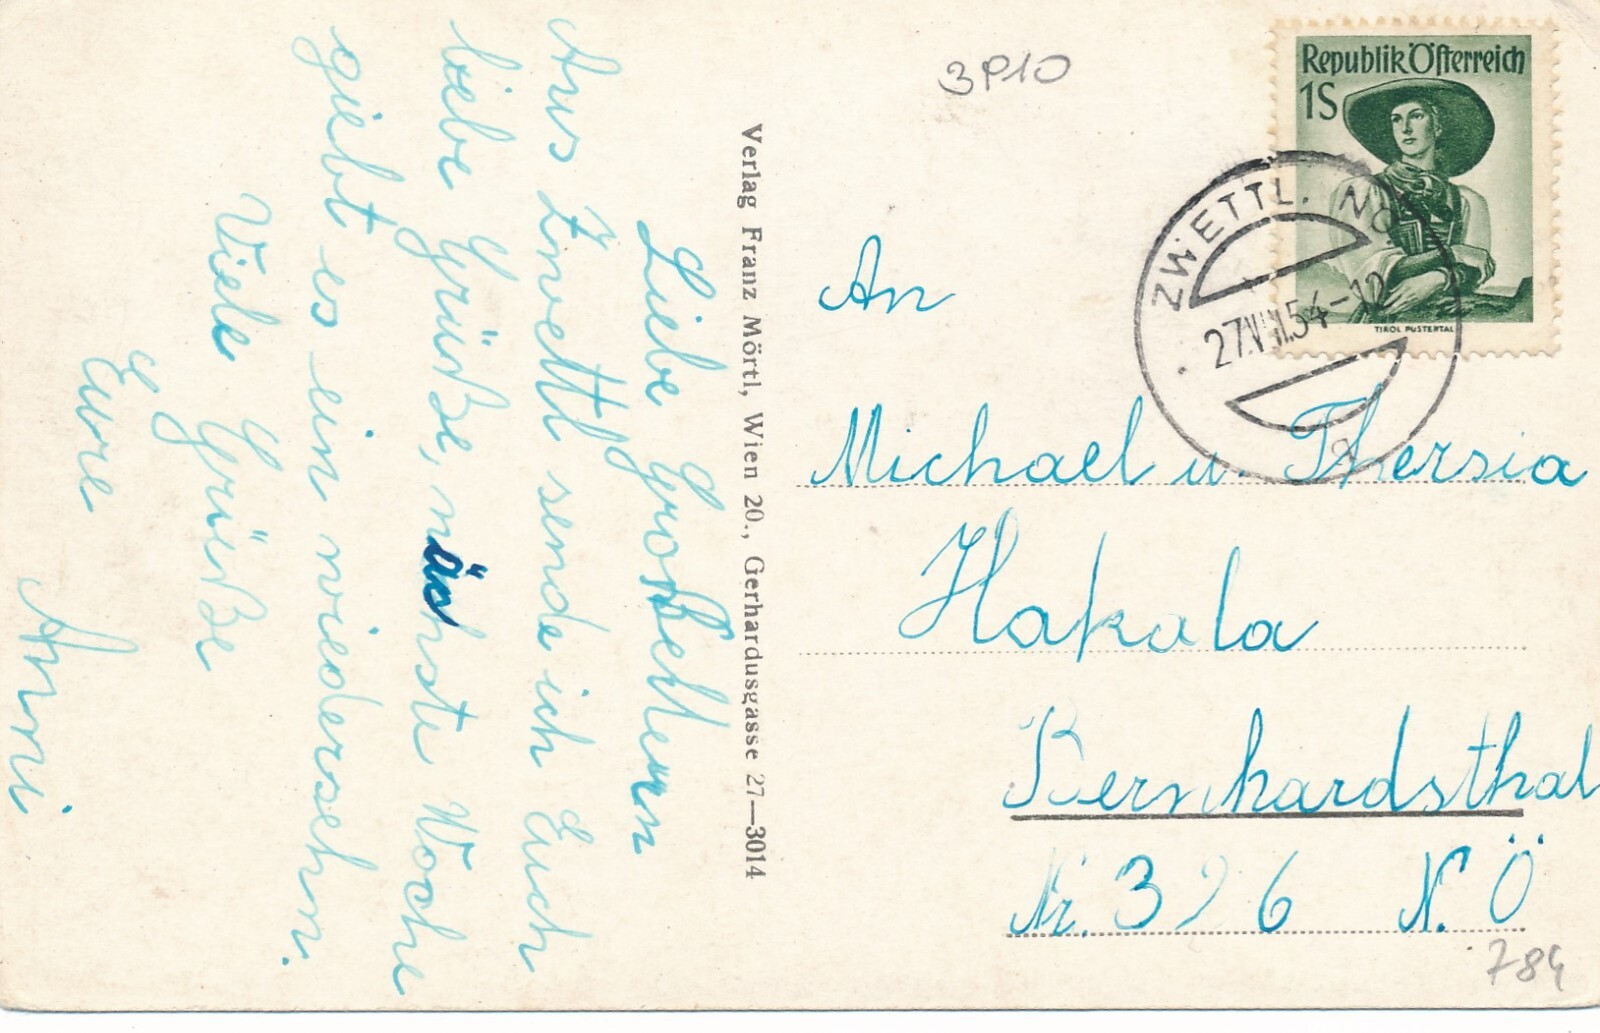 Liebe Großeltern
Aus Zwettl sende ich Euch
liebe Grüße, nächste Woche
giebt es ein wiedersehn.
Viele Grüße
Eure
Anni
Verlag Franz Mörtl, Wien 20., Gerhardusgasse 27—3014
3P10
Republik Österreich
1S
TIROL PUSTERTAL
ZWETTL. NÖ
27.VIII.54-12
a
An
Michael u. Thersia
Hakala
Bernhardsthal
Nr. 326 N.Ö
784